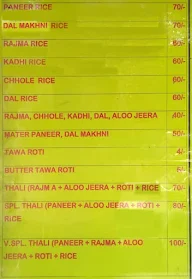 PANEER RICE 70/-
DAL MAKHNI RICE 70/-
RAJMA RICE 60/-
KADHI RICE 60/-
CHHOLE RICE 60/-
DAL RICE 60/-
RAJMA, CHHOLE, KADHI, DAL, ALOO JEERA 40/-
MATER PANEER, DAL MAKHNI 50/-
TAWA ROTI 4/-
BUTTER TAWA ROTI
THALI (RAJMA + ALOO JEERA + ROTI + RICE 70/-
SPL. THALI (PANEER + ALOO JEERA + ROTI + 80/-
RICE
V.SPL. THALI (PANEER + RAJMA + ALOO 100/-
JEERA + ROTI + RICE